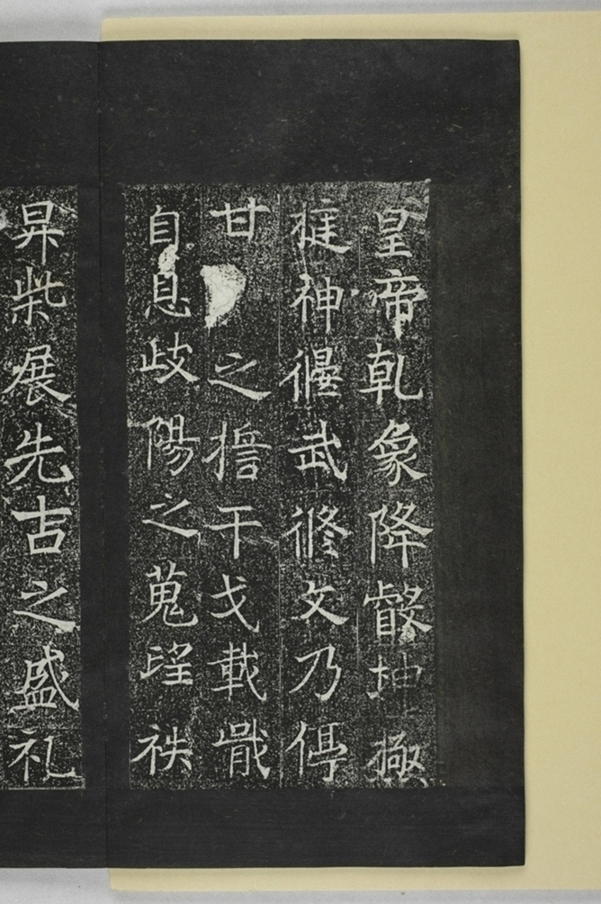 皇帝乾象降叡坤極
挺神偃武修文乃停
甘之干戈載戢
自息歧陽之蒐望袟
昇柴展先吉之盛礼